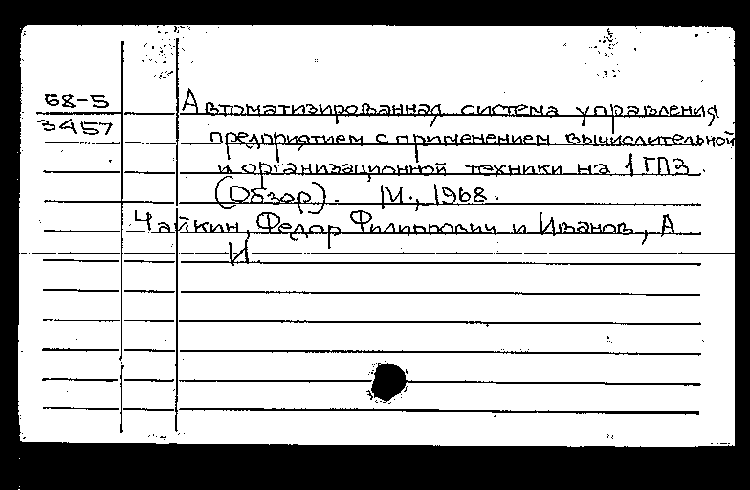 68-5
3457
Автоматизированная система управления
предприятием с применением вычислительной
и организационной техники на 1 ГПЗ.
(Обзор). М., 1968.
Чайкин, Федор Филиппович и Иванов, А
И.